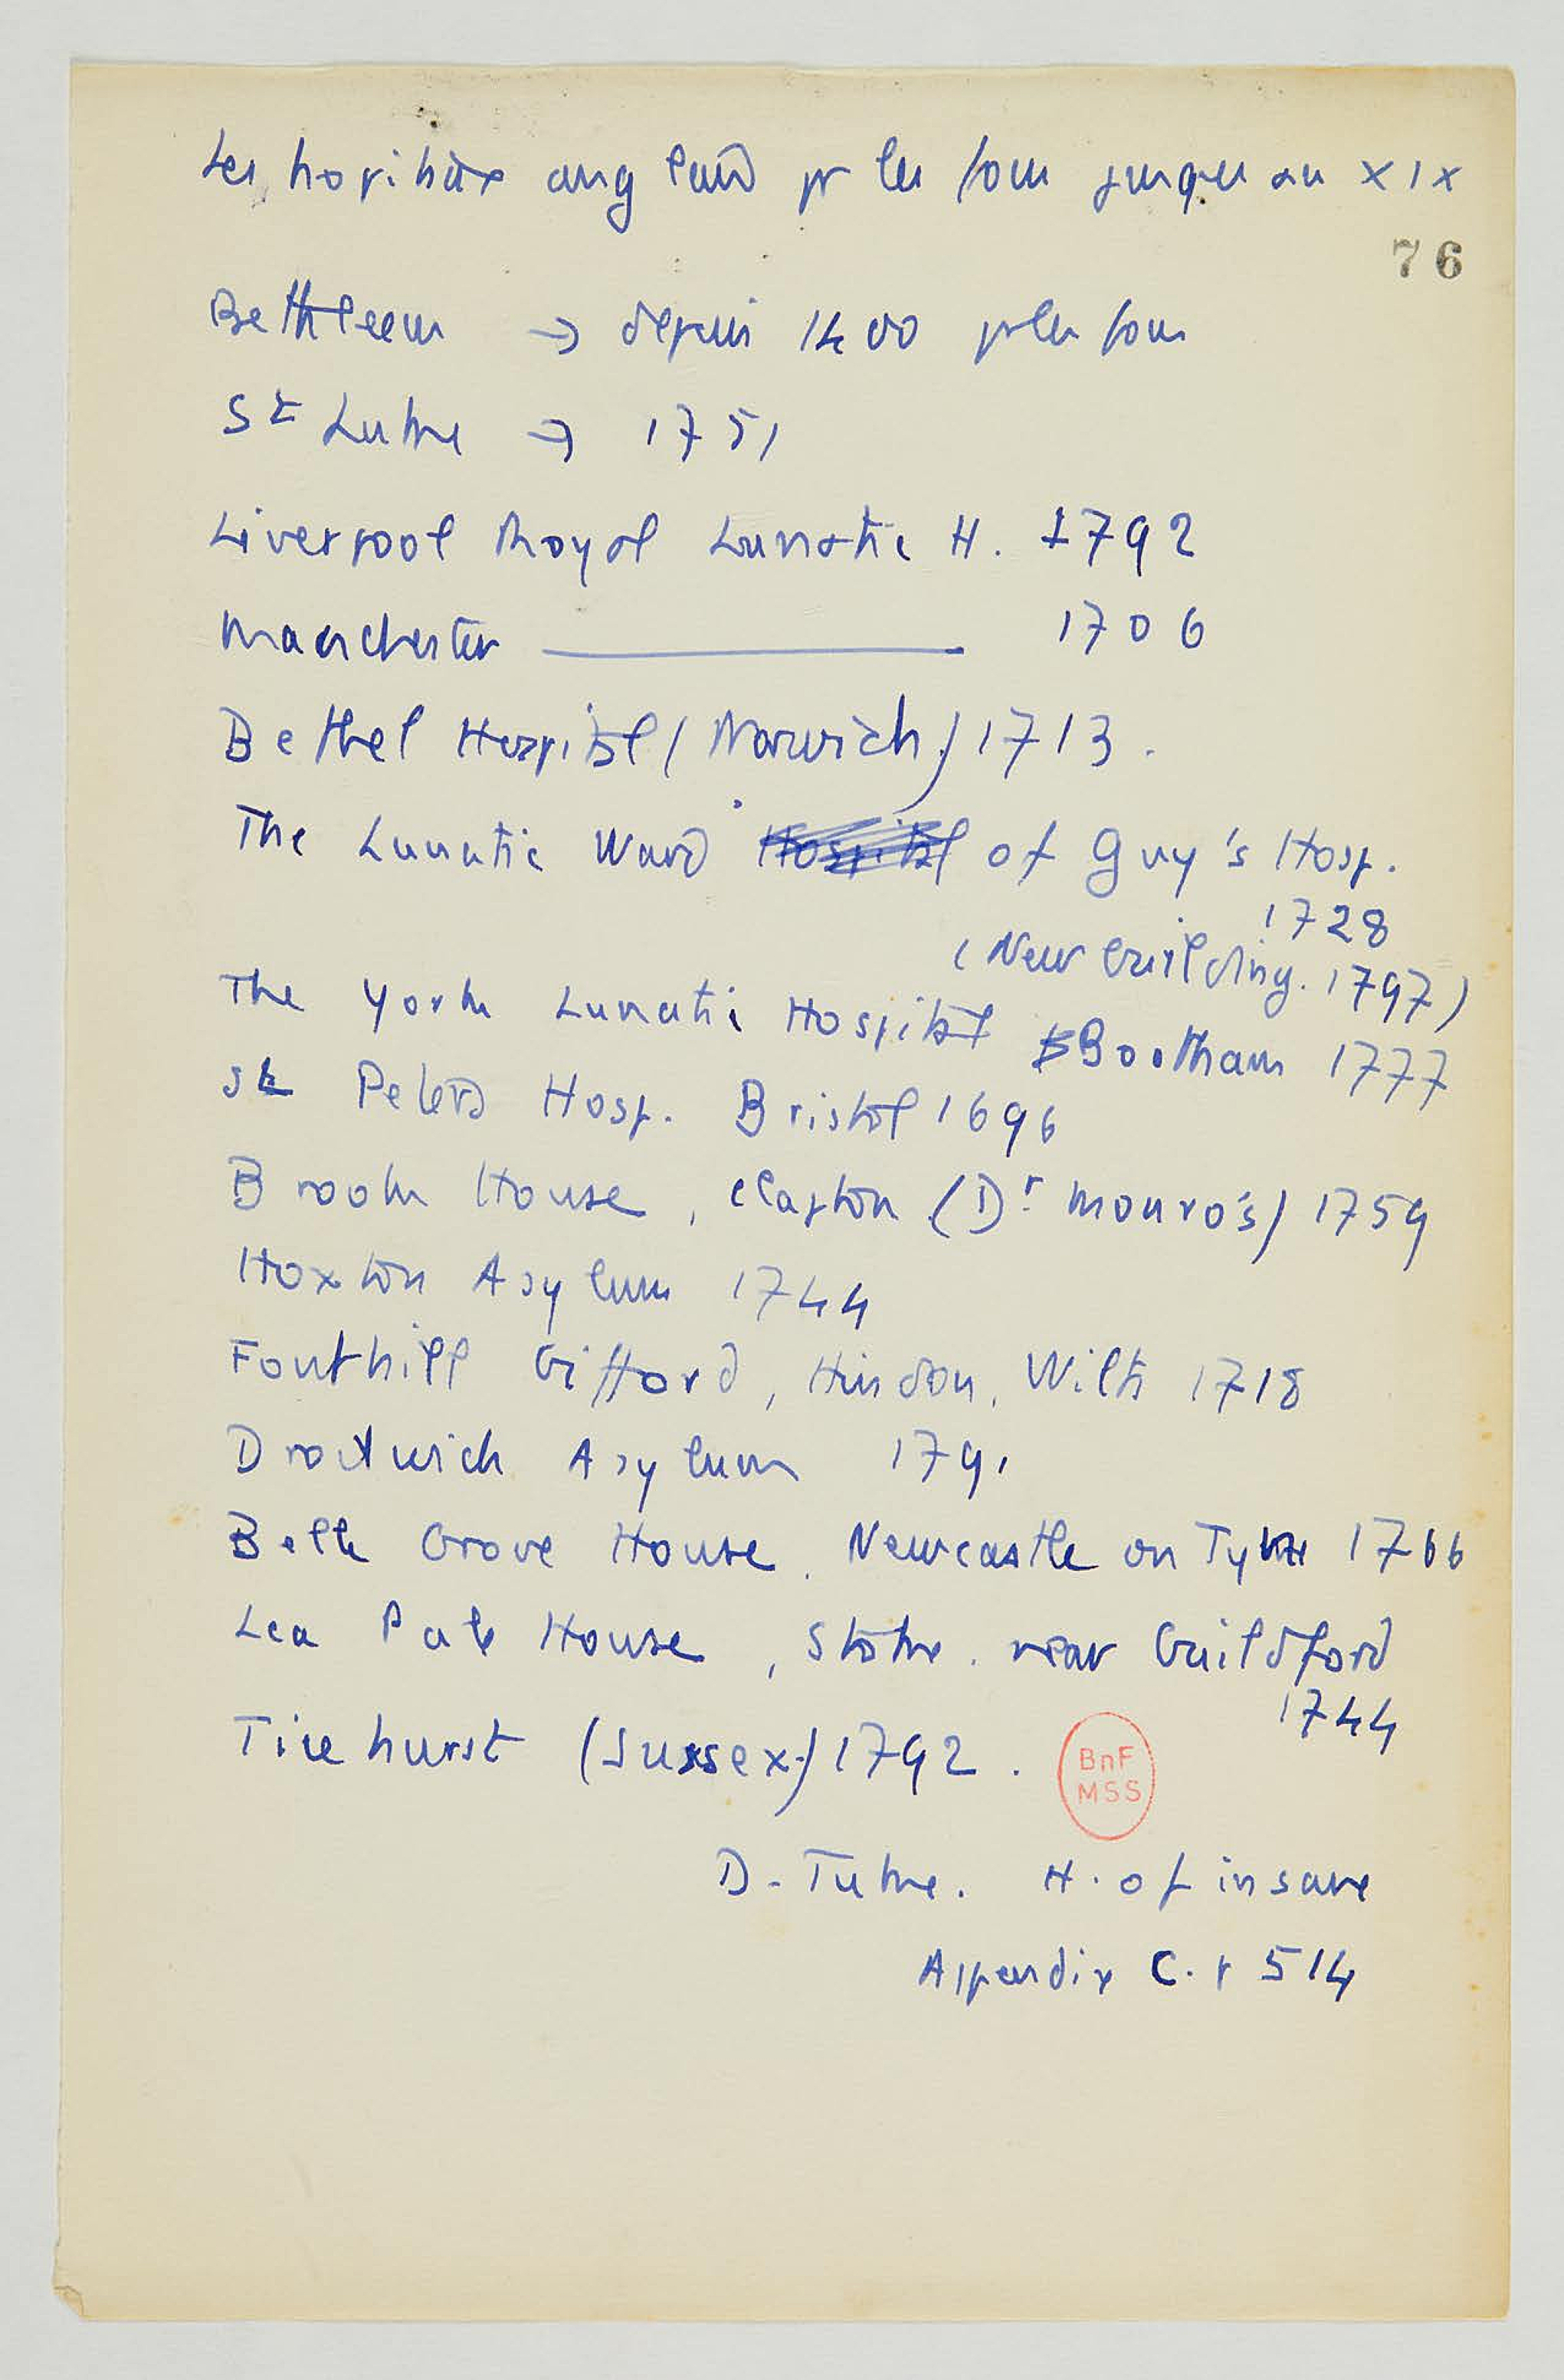 Les hopitaux anglais pr les fous jusqu'au XIX
76
Bethleem → depuis 1400 pr les fous
St Luke → 1751
Liverpool Royal Lunatic H. 1792
Manchester ——— 1706
Bethel Hospital (Norwich) 1713.
The Lunatic Ward Hospital of Guy's Hosp.
1728
(New building. 1797)
The York Lunatic Hospital Bootham 1777
St Peters Hosp. Bristol 1696
Brook House, Clapton (Dr Monro's) 1759
Hoxton Asylum 1744
Fonthill Gifford, Hindon, Wilts 1718
Droitwich Asylum 1791
Belle Grove House. Newcastle on Tyne 1766
Lea Pale House, Stoke. near Guildford
1744
Ticehurst (Sussex) 1792.
BnF
MSS
D. Tuke. H. of insane
Appendix C. p 514